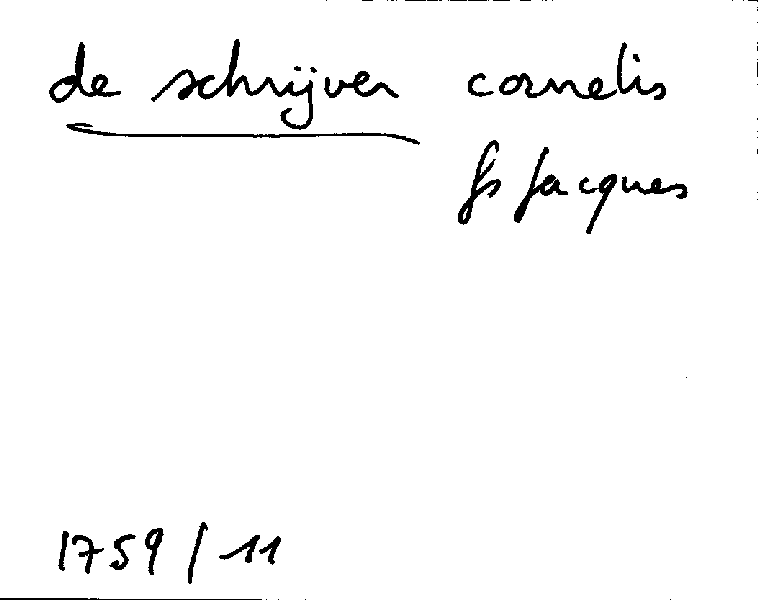 de schrijver cornelis
fs Jacques
1759 / 11